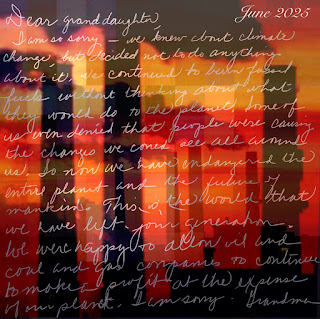 June 2025
Dear granddaughter,
I am so sorry we knew about climate
change but decided not to do anything
about it. We continued to burn fossil
fuels without thinking about what
they would do to the planet. Some of
us even denied that people were causing
the changes we could see all around
us. So now we have endangered the
entire planet and the future of
mankind. This is the world that
we have left your generation.
We were happy to allow oil and
coal and gas companies to continue
to make a profit at the expense
of our planet. I am sorry. Grandma